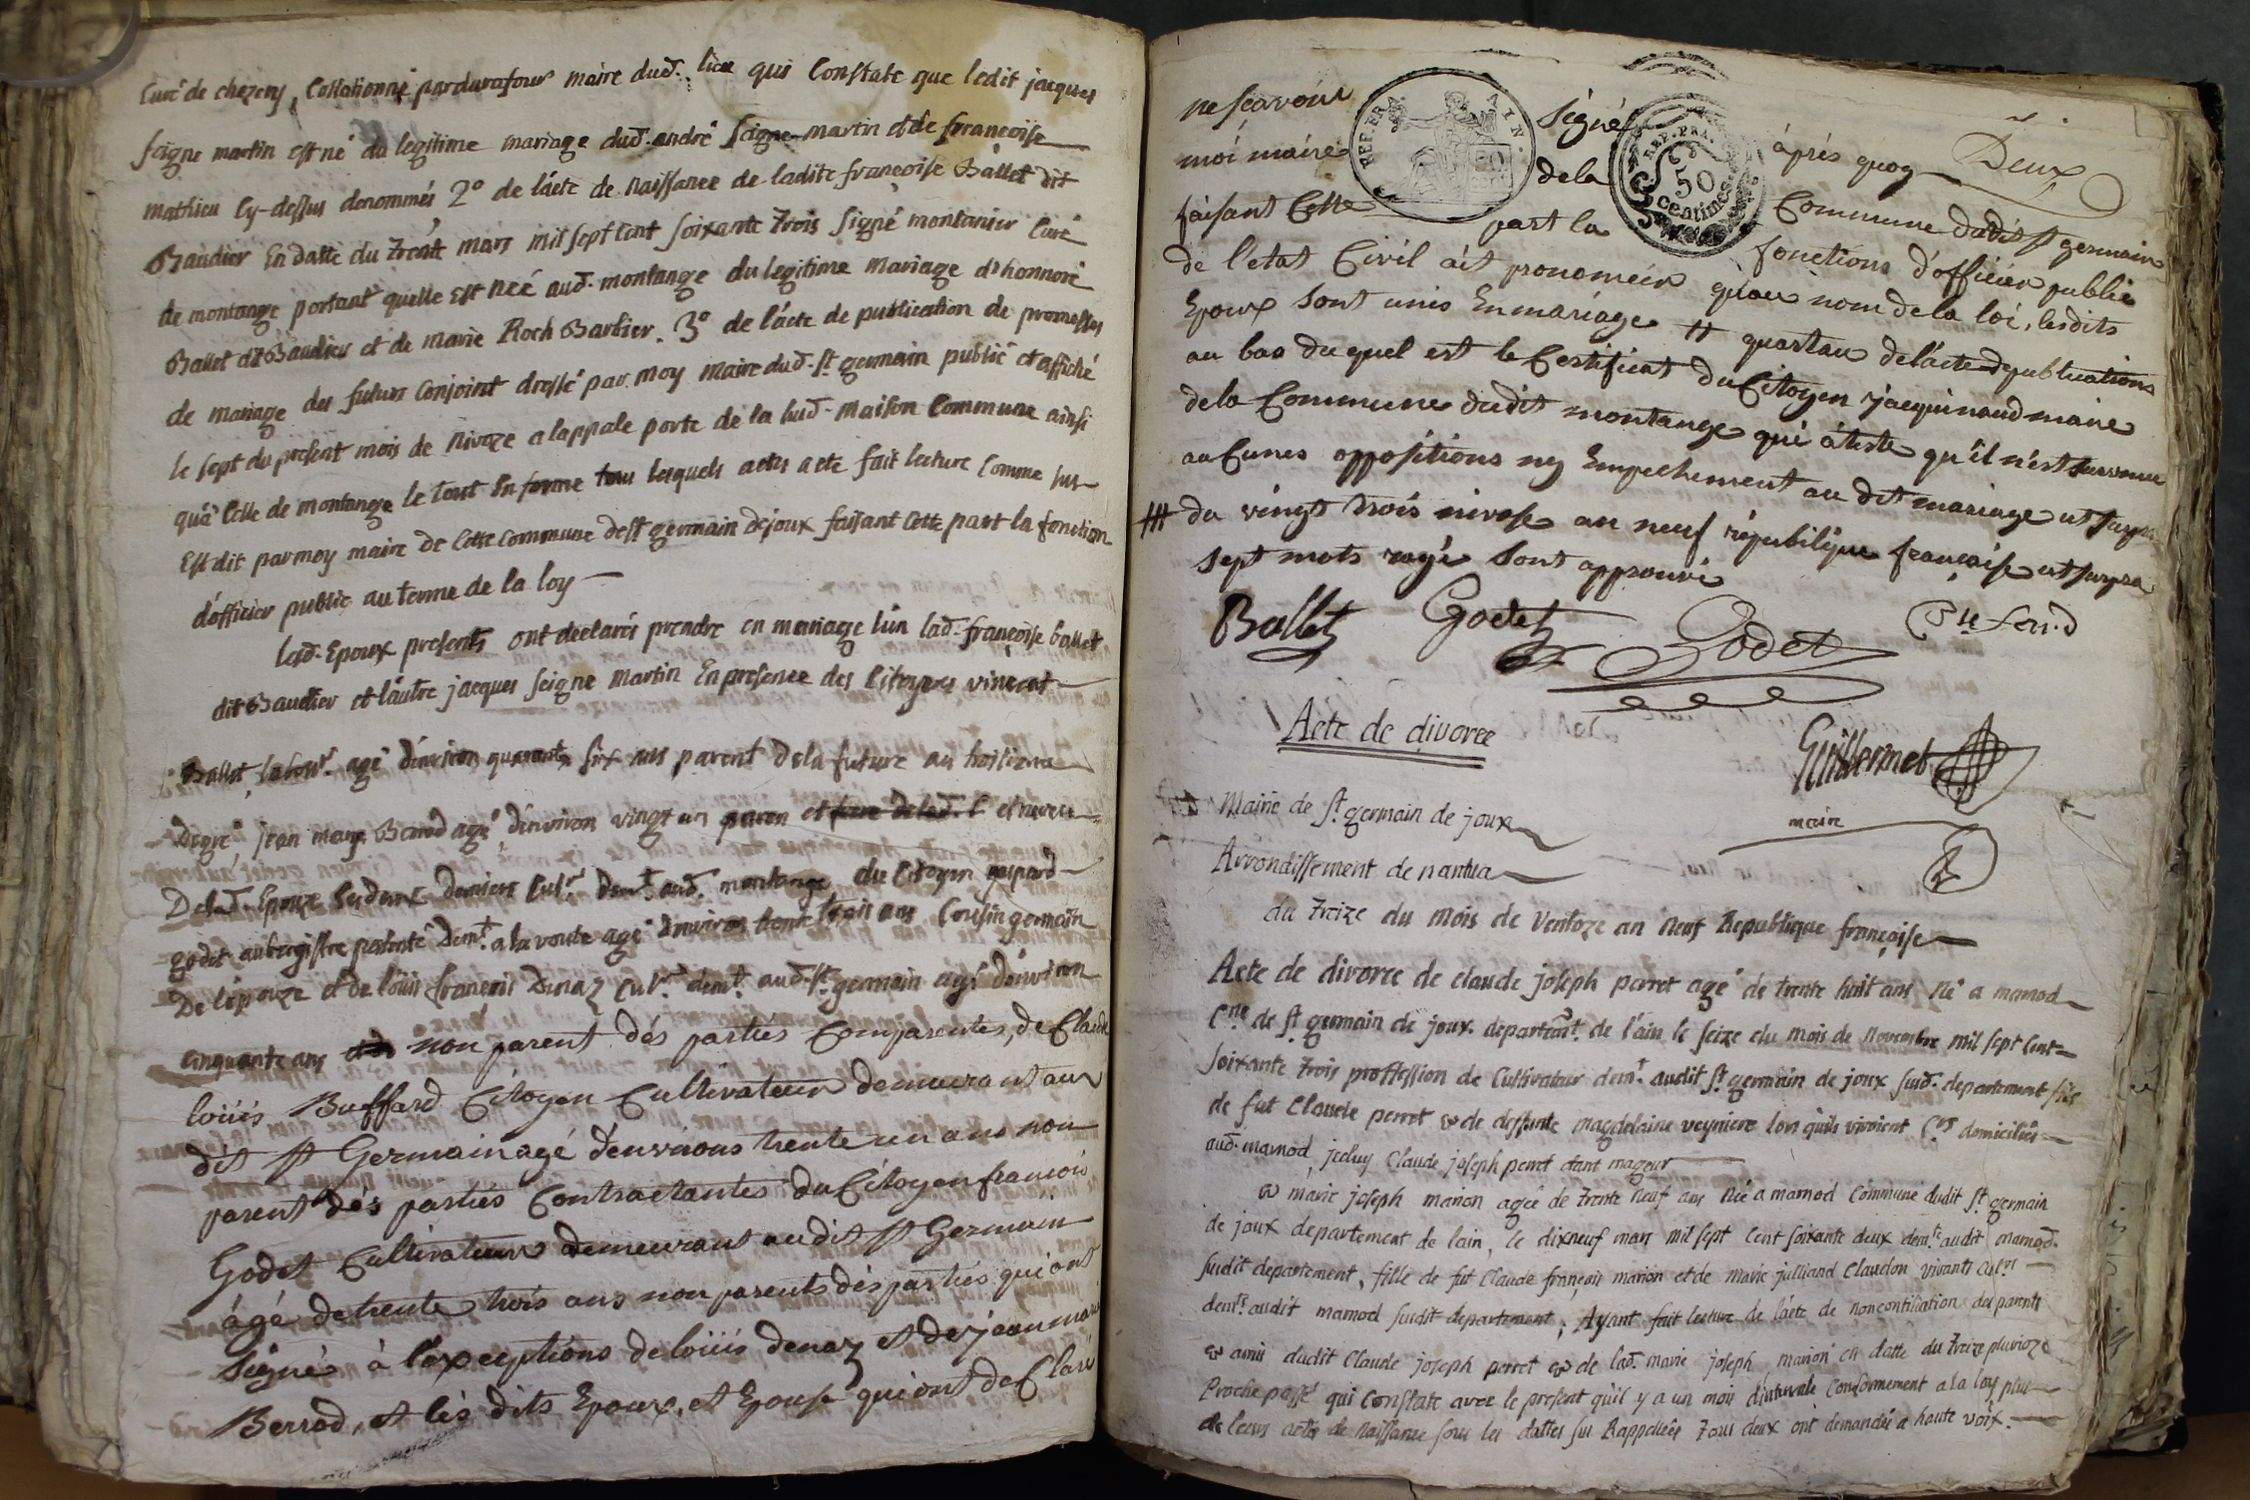 Curé de chezery, Collationné par durafour maire dud. lieu qui Constate que ledit jacques
seigne martin est né du legitime mariage dud. andré seigne martin et de françoise
mathieu Cy-dessus denommés 2° de lácte de Naissance de ladite françoise Ballet dit
Baudier En datte du trente mars mil sept Cent soixante trois signé montanier Curé
de montange portant quelle Est Neé aud. montange du legitime Mariage d'honnoré
Ballet dit Baudier et de marie Roch Barbier. 3° de lácte de publication de promesses
de mariage des futurs Conjoint dressé par moy maire dud. St germain publié et affiché
le sept du present mois de Nivoze a lappale porte de la sud. Maison Commune ainsi
qu'a Celle de montange le tout En forme tous lesquels actes a ete fait lecture Comme sus
Est dit par moy maire de Cette commune de St germain dejoux faisant Cette part la fonction
dófficier public au terme de la loy
lesd. Epoux presents ont declarés prendre en mariage lún lad. françoise ballet
dit Baudier et láutre jacques seigne martin En presence des Citoyens vincent
Ballet, labour. agé dénviron quarante six ans parent dela future au troisieme
Degré, jean marie Berrod agé dénviron vingt un et neveu
De lad. Epouze les deux derniers Cult. demt. aud. montange du Citoyen gaspard
godet aubergiste patenté Demt. a la voute agé dénviron trente trois ans Cousin germain
De lépouze et de loüis françois Denaz Cult. demt. aud. St germain agé dénviron
cinquante ans non parent dés partiés Comparentes, de Claude
loüis Buffard Citoyen Cultivateur demeurant au
dit St Germain agé d'environs trente un ans non
parent des partiés Contractantes du Citoyen francois
Godet Cultivateur demeurant audit St Germain
ágé de trente trois ans non parents dés partiés qui ont
signé à l'exceptions de loüis denaz et de jean marie
Berrod, et lés dits Epoux, et Epouse qui ont de Claré
ne sçavoir signé áprés quoy Deux
moi maire de la Commune dudit St germain
faisant Cette part la fonctions d'officier public
de l'etat Civil áit pronomcér qu'au nom de la loi, lesdits
Epoux sont unis En mariage # quartau de lácte de publications
au bas du quel est le Certificat du Citoyen jacquinaud maire
de la Commune dudit montange qui áteste qu'il n'est survenu
auCunes oppositions ny Empechement au dit mariage et
### du vingt trois nivose an neuf républiqe francaise et
sept mots rayé sont approuvé
REP. FRA. AIN.
REP. FRA. 50 centimes
Ballet Godet Godet
Guillermet
maire
Acte de divorce
Mairie de St germain de joux
Arrondissement de nantua
du treize du Mois de Ventoze an Neuf Republique françoise
Acte de divorce de claude joseph perret agé de trente huit ans Né a mamod
Cne de St germain de joux departemt. de l'ain le seize du mois de Novembre mil sept Cent
soixante trois proffession de Cultivateur demt. audit St germain de joux susd. departement fils
de fut Claude perret & de deffunte magdelaine veyniere lors qu'ils vivoient Cers domiciliés
aud. mamod, jceluy Claude joseph perret étant mageur
& marie joseph marion agée de trente Neuf ans Né a mamod Commune dudit St germain
de joux departement de lain, le dixneuf mars mil sept Cent soixante deux demte audit mamod.
susdit departement, fille de fut Claude françois marion et de marie julliand Claudon vivants Culrs
demt. audit mamod susdit departement; Ayant fait lecture de lácte de nonconciliation des parents
& amis dudit Claude joseph perret & de lad. marie joseph marion en datte du treize pluvioze
Proche passé qui Constate avec le present qu'il y a un mois d'intervale Conformement a la loy plus
de leurs actes de Naissance sous les dattes sus Rappellées tous deux ont demandés a haute voix.